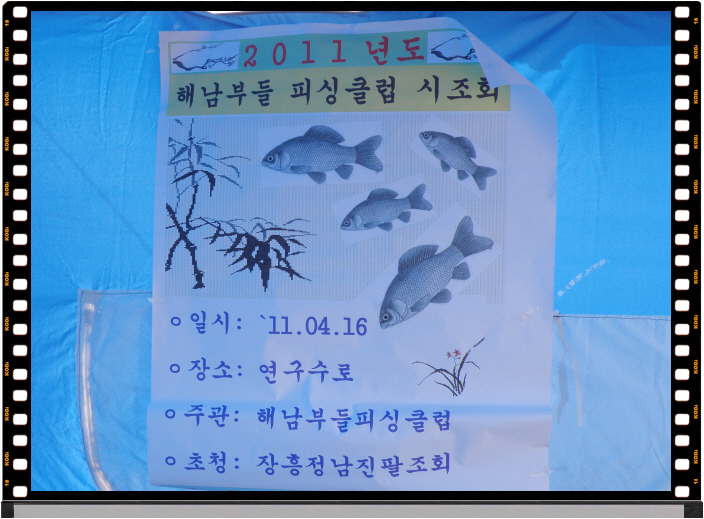 2011년도
해남부들 피싱클럽 시조회
ㅇ일시: `11.04.16
ㅇ장소: 연구수로
ㅇ주관: 해남부들피싱클럽
ㅇ초청: 장흥정남진팔조회